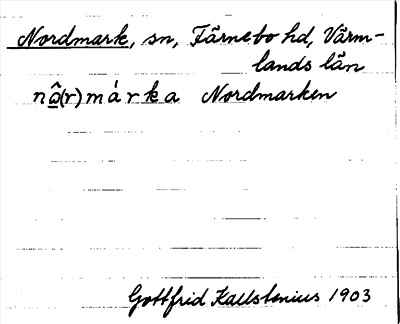 Nordmark, sn, Färnebo hd, Värm-
lands län
nô̲(r)márka Nordmarken
Gottfrid Kallstenius 1903